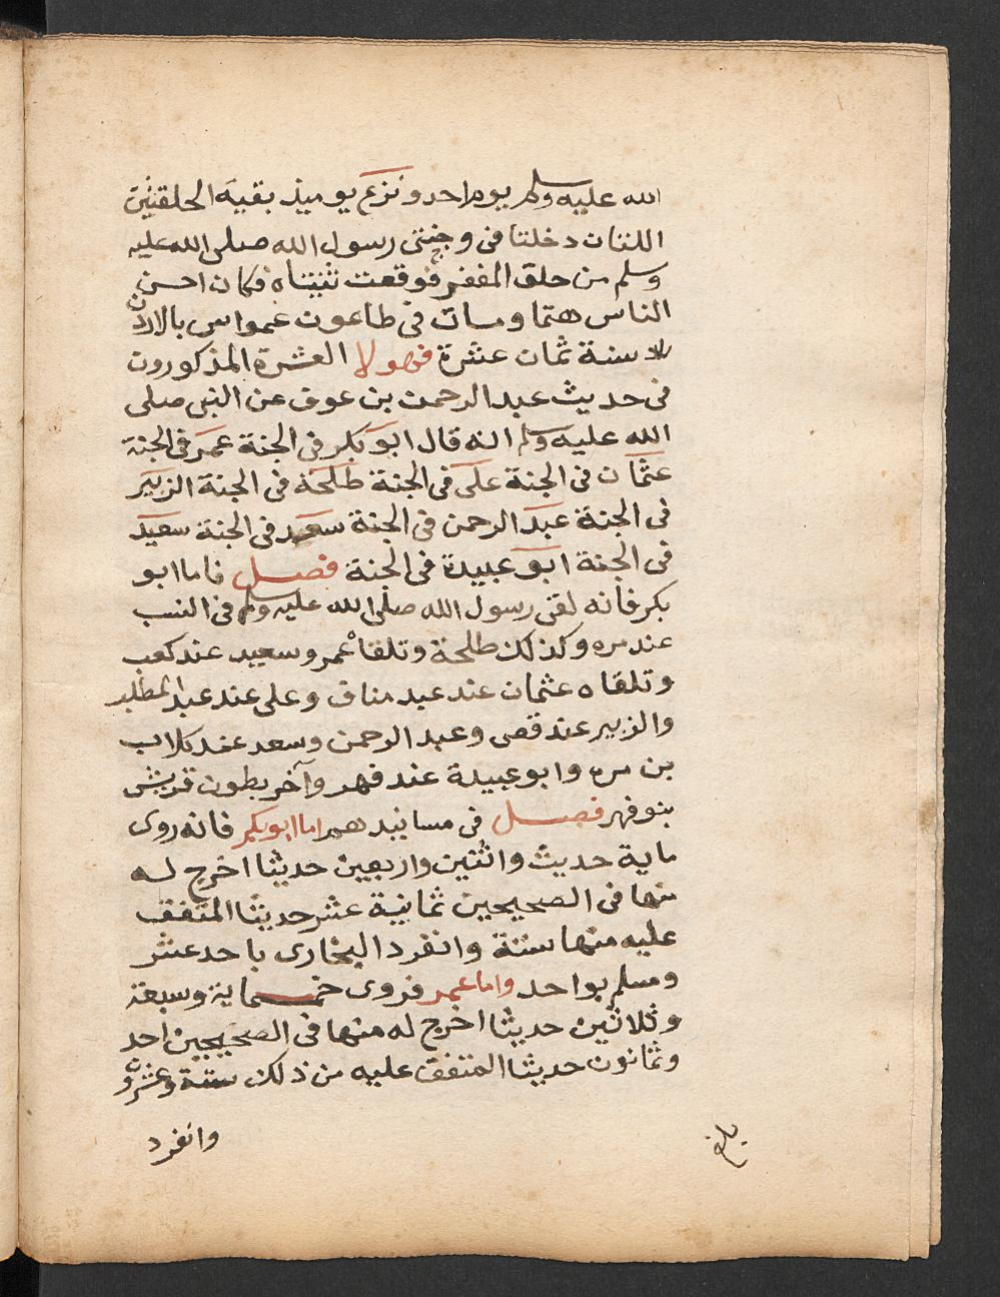 الله عليه وسلم يوم احد ونزع يوميذ بفيه الحلقتين
اللتان دخلتا فى وجنتى رسول الله صلى الله عليه
وسلم من حلق المغفر فوقعت ثنيتاه فكان احسن
الناس هتما ومات فى طاعون عمواس بالاردن
سنة ثمان عشرة فهولا العشرة المذكورون
فى حديث عبد الرحمن بن عوف عن النبى صلى
الله عليه وسلم انه قال ابو بكر فى الجنة عمر فى الجنة
عثمان فى الجنة على فى الجنة طلحة فى الجنة الزبير
فى الجنة عبد الرحمن فى الجنة سعد فى الجنة سعيد
فى الجنة ابو عبيدة فى الجنة فصل فاما ابو
بكر فانه لقى رسول الله صلى الله عليه وسلم فى النسب
عند مره وكذلك طلحة وتلقاه عمر وسعيد عند كعب
وتلقاه عثمان عند عبد مناف وعلى عند عبد المطلب
والزبير عند قصى وعبد الرحمن وسعد عند كلاب
بن مره وابو عبيدة عند فهر وآخر بطون قريش
بنو فهر فصل فى مسانيدهم اما ابو بكر فانه روى
ماية حديث واثنين واربعين حديثا اخرج له
منها فى الصحيحين ثمانية عشر حديثا المتفق
عليه منها ستة وانفرد البخارى باحد عشر
ومسلم بواحد واما عمر فروى خمسماية وسبعة
وثلاثين حديثا اخرج له منها فى الصحيحين احد
وثمانون حديثا المتفق عليه من ذلك ستة وعشرون
وانفرد
بلغ